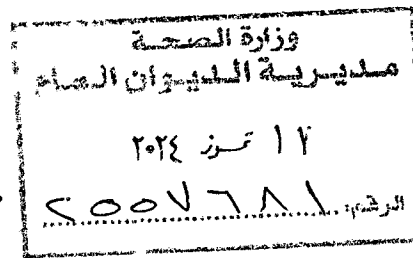 وزارة الصحة
مديرية الديوان العام
١٧ تموز ٢٠٢٤
الرقم: ٢٥٥٧٦٨١